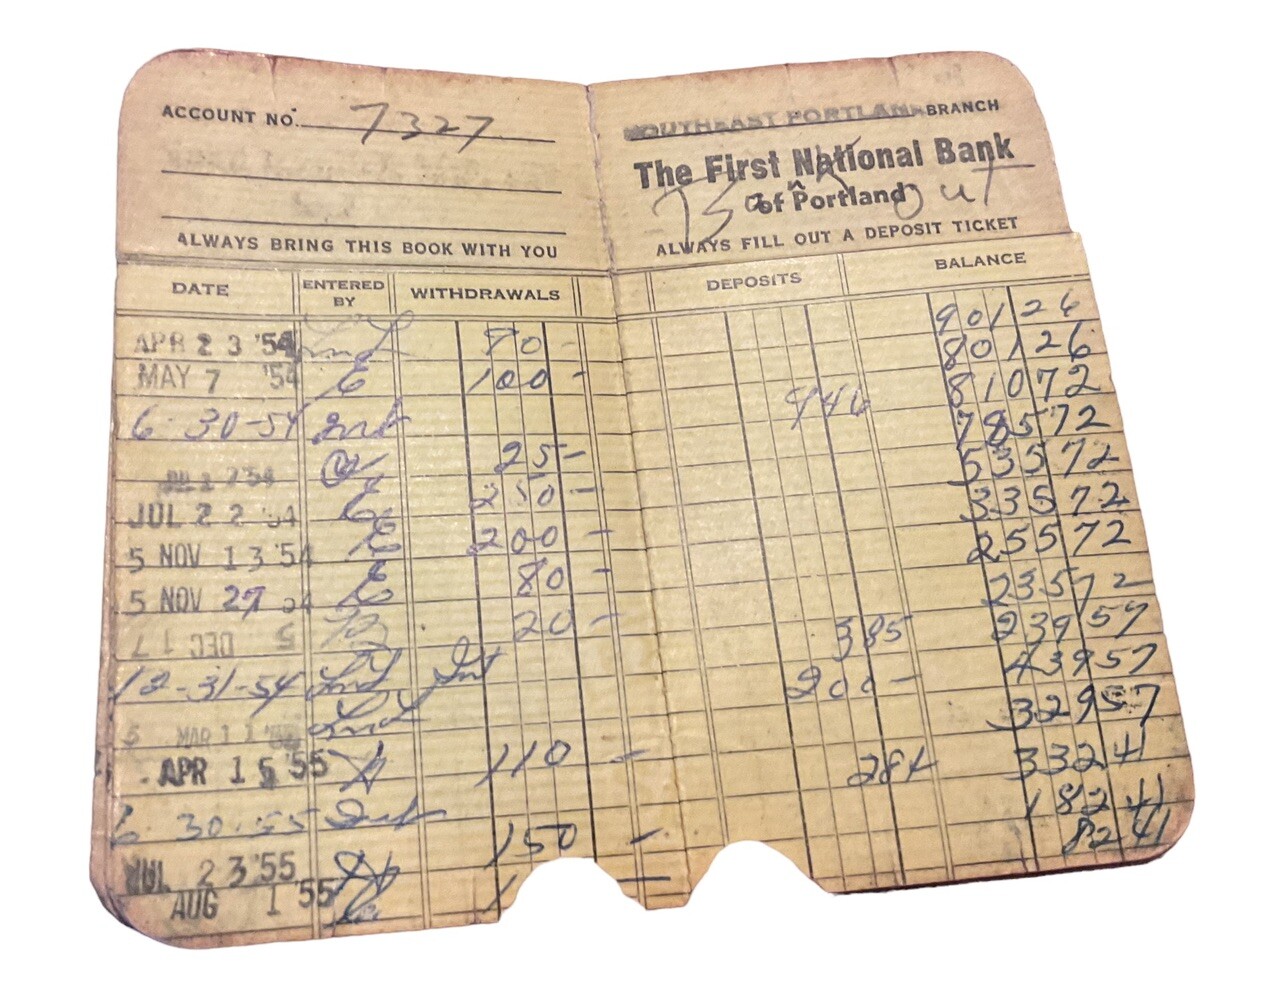 ACCOUNT NO. 7327
ALWAYS BRING THIS BOOK WITH YOU
SOUTHEAST PORTLAND BRANCH
The First National Bank
of Portland
out
ALWAYS FILL OUT A DEPOSIT TICKET
DATE ENTERED BY WITHDRAWALS DEPOSITS BALANCE
APR 23 '54 90 - 901 26
MAY 7 '54 E 100 - 801 26
6-30-54 Int 9 46 810 72
'54 25 - 785 72
JUL 22 '54 E 250 - 535 72
5 NOV 13 '54 E 200 - 335 72
5 NOV 27 54 E 80 - 255 72
5 DEC 17 20 - 235 72
12-31-54 Int 3 85 239 57
MAR 11 200 - 439 57
APR 15 '55 110 - 329 57
6 30-55 Int 2 84 332 41
JUL 23 '55 150 - 182 41
AUG 1 '55 1 - 82 41